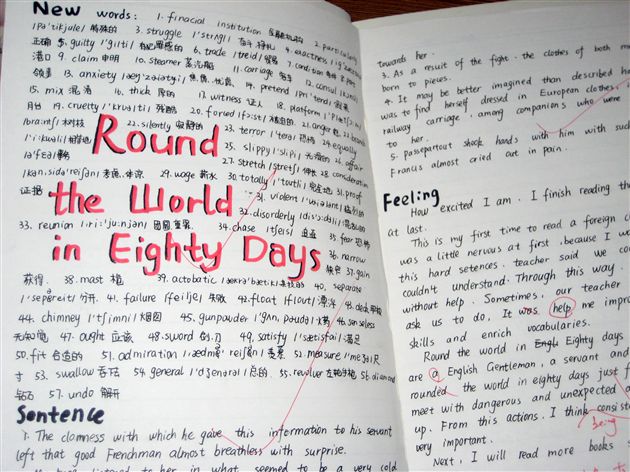 New words:
1. finacial institution 金融机构
2. particularly
/pə'tikjuləli/ 特殊的 3. struggle /'strʌgl/ 奋斗 挣扎 4. exactness
正确 5. guilty /'gilti/ 有犯罪感的 6. trade /treid/ 贸易 7. condition 条件
港口 9. claim 申明 10. steamer 蒸汽船 11. carriage 12. consul
领事 13. anxiety 焦虑, 忧虑 14. pretend 假装
15. mix 混淆 16. thick 厚的 17. witness 证人 18. platform
月台 19. cruelty /'kruəlti/ 残酷 20. forced /fɔ:st/ 被迫的 21. anger 怒 22. branch
/bra:ntʃ/ 树枝 22. silently 寂静的 23. terror /'terə/ 恐怖 24. equally
/'i:kwəli/ 相等地 25. slippy /'slipi/ 光滑的 26. affair
/ə'feə/ 事务 27. stretch /stretʃ/ 伸长 28. consideration
/kən,sidə'reiʃən/ 考虑, 体谅 29. wage 薪水 30. totally 完全地 31. proof
证据 31. violent 猛烈的
32. disorderly 混乱的
33. reunion /ri:'ju:njən/ 团圆, 重聚 34. chase /tʃeis/ 追逐 35. fear 恐怖
36. narrow
37. gain
获得. 38. mast 桅 39. actobatic 40. separate
/'sepəreit/ 分开. 41. failure /'feiljə/ 失败 42. float /flout/ 漂浮 43. dock
44. chimney /'tʃimni/ 烟囱 45. gunpauder 火药 46. senseless
无知觉 47. ought 应该 48. sword 剑, 刀 49. satisfy /'sætisfai/ 满足
50. fit 合适的 51. admiration 羡慕 52. measure /'meʒə/ 尺
寸 53. swallow 吞咽 54. general /'dʒenərəl/ 总的. 55. revolver 左轮手枪 56. diamond
钻石 57. undo 解开
Round
the World
in Eighty Days
Sentence
1. The clamness with which he gave this information to his servant
left that good Frenchman almost breathless with surprise.
listened to her in what seemed to be a very cold
towards her.
3. As a result of the fight. the clothes of both men
born to pieces.
4. It may be better imagined than described how
was to find herself dressed in European clothes,
railway carriage, among companions who were
to her.
5. Passepartout shook hands with him with such
Francis almost cried out in pain.
Feeling
How excited I am. I finish reading the
at last.
This is my first time to read a foreign
was a little nervous at first, because I
this hard setences. teacher said we
couldn't understand. Through this way.
without help. Sometimes, our teacher
ask us to do. It was help me improve
skills and enrich vocabularies.
Round the world in Eighty days
are a English Gentleman, a servant and
rounded the world in eighty days just
meet with dangerous and unexpected
up. From this actions. I think consist
being
very important.
Next, I will read more books